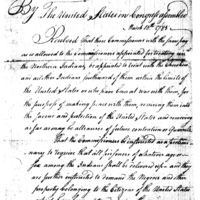 By The United States in Congress Assembled
March 15th 1785
Resolved That three Commissioners with the same pay
as is allowed to the Commissioners appointed for treating with
the Northern Indians be appointed to treat with the Cherokees
and all other Indians southward of them within the limits of
the United States or who have been at war with them for
the purpose of making peace with them, receiving them into
the favor and protection of the United States and removing
as far as may be all causes of future contention or Quarrels
That the Commissioners be instructed to
that all prisoners of whatever age or
sex among the Indians shall be restored and they
are further instructed to demand the Negroes and other
property belonging to the Citizens of the United States